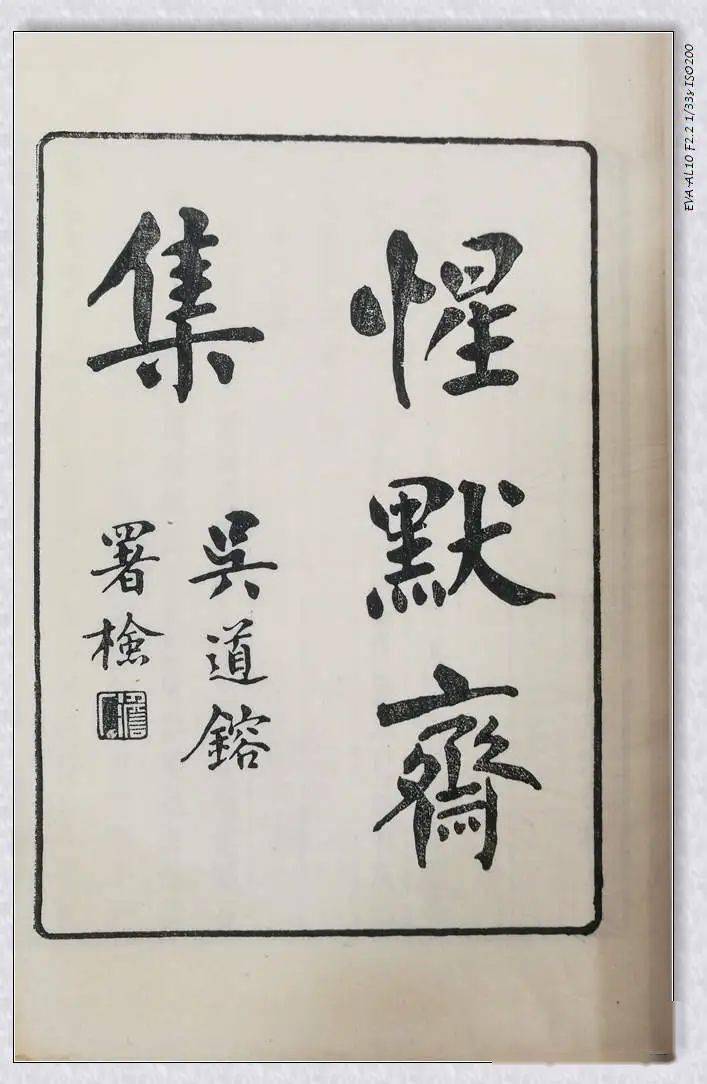 惺默齋
集
吳道鎔
署檢
EVA-AL10 F2.2 1/33s ISO200